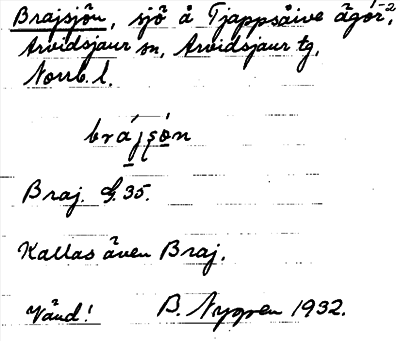 Brajsjön, sjö å Tjappsåive ägor, 1-2
Arvidsjaur sn, Arvidsjaur tg,
Norrb. l.
brájso̱n
Braj. G. 35.
Kallas även Braj.
Vänd! B. Nygren 1932.